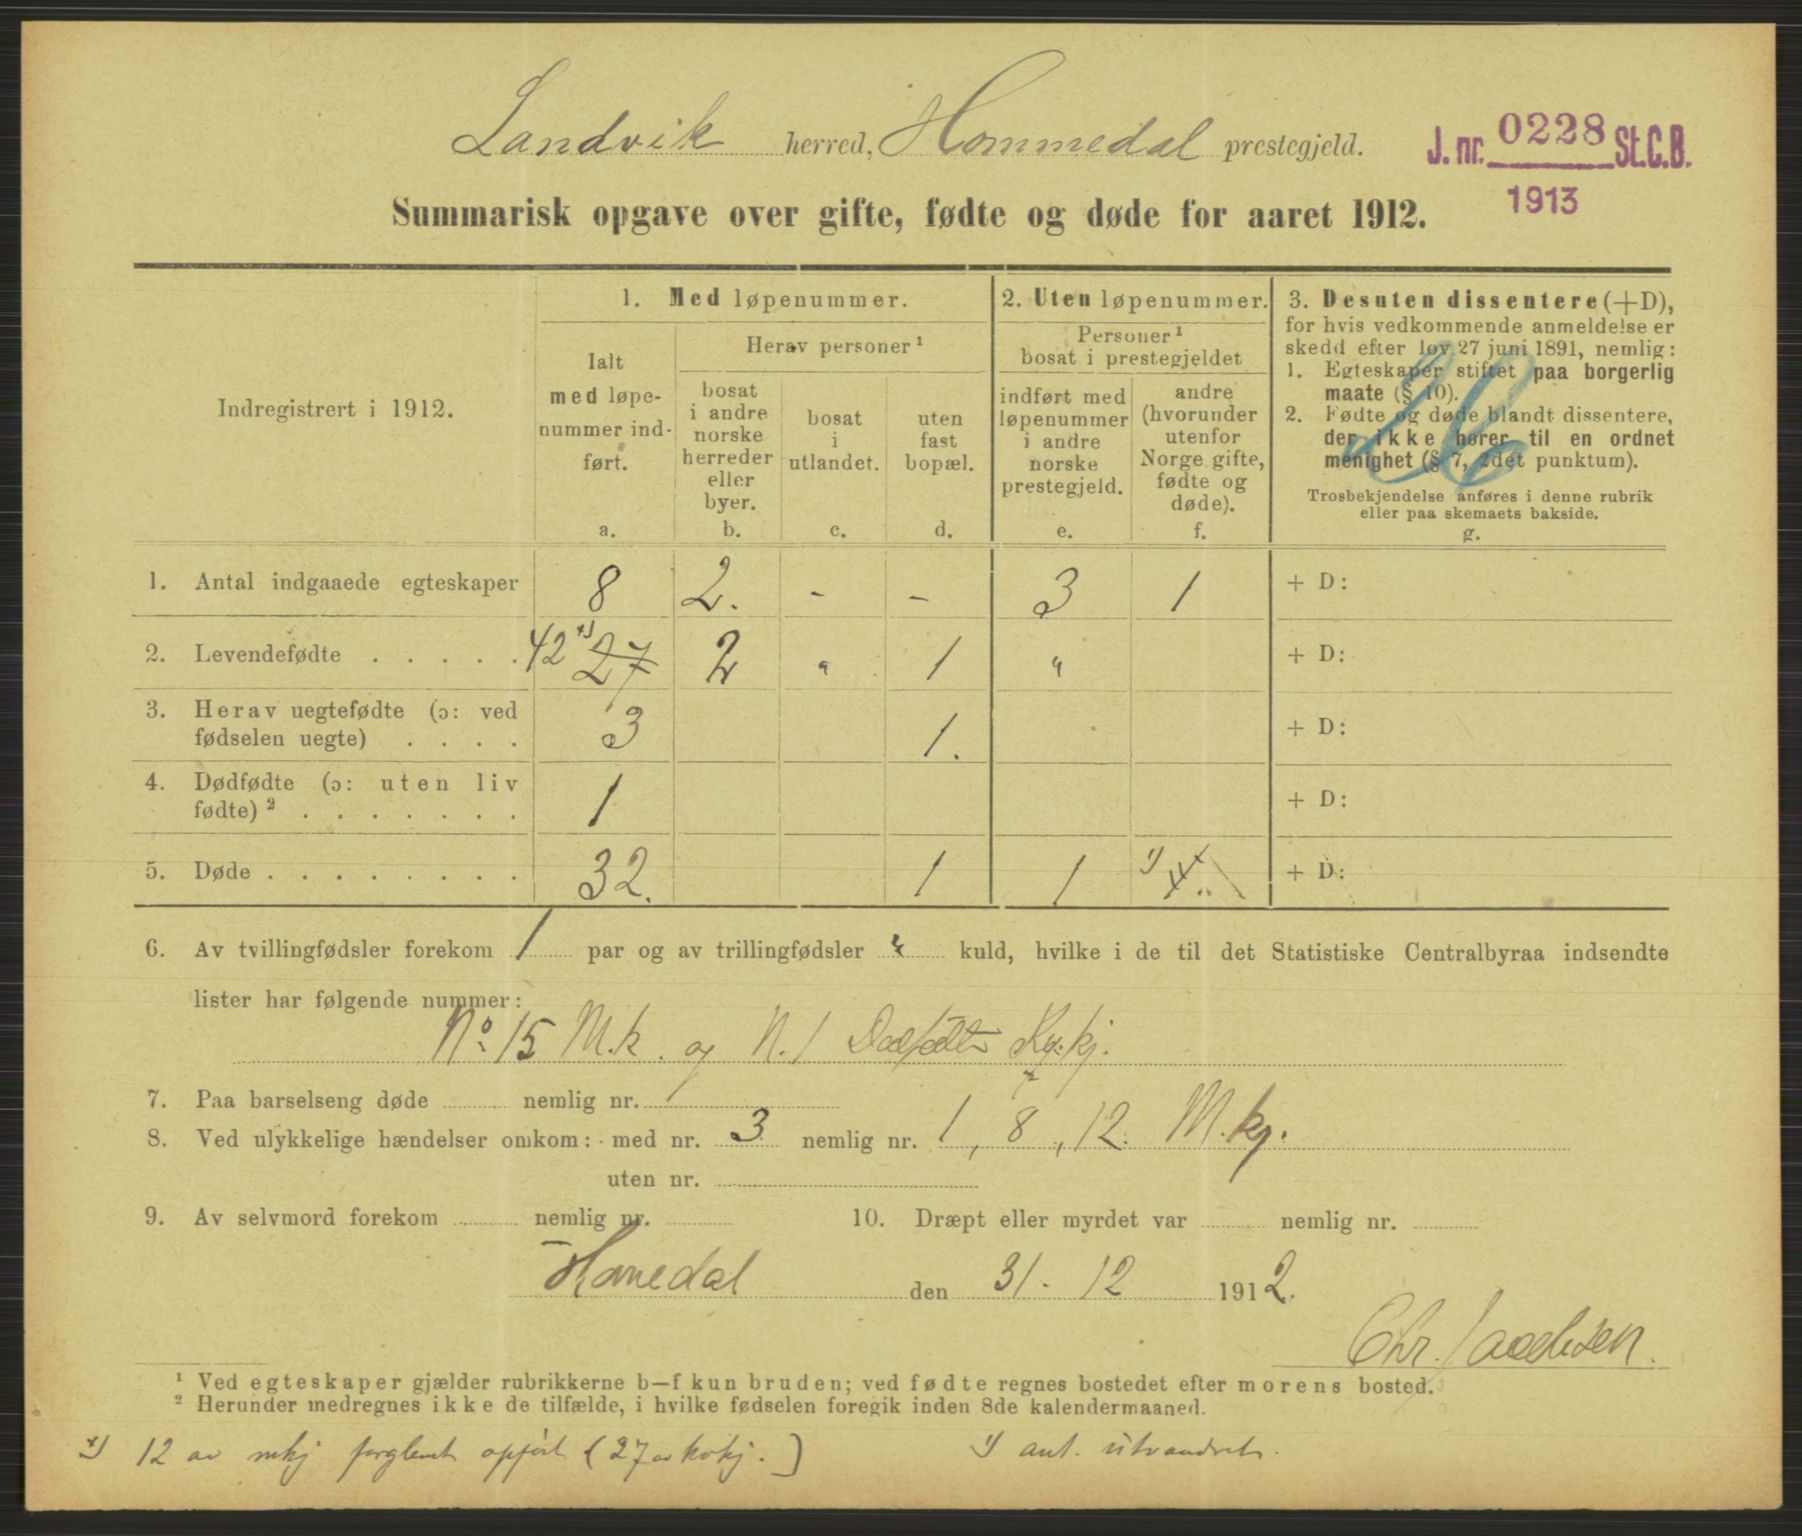 Landvik herred, Hommedal prestegjeld.
J. nr. 0228 St.C.B.
1913
Summarisk opgave over gifte, fødte og døde for aaret 1912.
Indregistrert i 1912.
1. Med løpenummer.
Ialt
med løpe-
nummer ind-
ført.
a.
Herav personer ¹
bosat
i andre
norske
herreder
eller
byer.
b.
bosat
i
utlandet.
c.
uten
fast
bopæl.
d.
2. Uten løpenummer.
Personer ¹
bosat i prestegjeldet
indført med
løpenummer
i andre
norske
prestegjeld.
e.
andre
(hvorunder
utenfor
Norge gifte,
fødte og
døde).
f.
3. Desuten dissentere (+D),
for hvis vedkommende anmeldelse er
skedd efter lov 27 juni 1891, nemlig:
1. Egteskaper stiftet paa borgerlig
maate (§ 10).
2. Fødte og døde blandt dissentere,
der ikke hører til en ordnet
menighet (§ 7, 2det punktum).
Trosbekjendelse anføres i denne rubrik
eller paa skemaets bakside.
g.
1. Antal indgaaede egteskaper 8 2. - - 3 1 + D:
2. Levendefødte . . . . . 42 *) 27 2 " 1 " + D:
3. Herav uegtefødte (ɔ: ved
fødselen uegte) . . . . 3 1. + D:
4. Dødfødte (ɔ: uten liv
fødte) ² . . . . . . . 1 + D:
5. Døde . . . . . . . . 32. 1 1 1) + D:
6. Av tvillingfødsler forekom 1 par og av trillingfødsler " kuld, hvilke i de til det Statistiske Centralbyraa indsendte
lister har følgende nummer:
No. 15 M.k. og N. 1 Dødfødte
7. Paa barselseng døde nemlig nr.
8. Ved ulykkelige hændelser omkom: med nr. 3 nemlig nr. 1, 8, 12. M.kj.
uten nr.
9. Av selvmord forekom nemlig nr. 10. Dræpt eller myrdet var nemlig nr.
Homedal den 31 - 12 1912.
Chr.
¹ Ved egteskaper gjælder rubrikkerne b—f kun bruden; ved fødte regnes bostedet efter morens bosted.
² Herunder medregnes ikke de tilfælde, i hvilke fødselen foregik inden 8de kalendermaaned.
*) 12 av mkj forglemt opført (27 av
1) ant. utvandret.